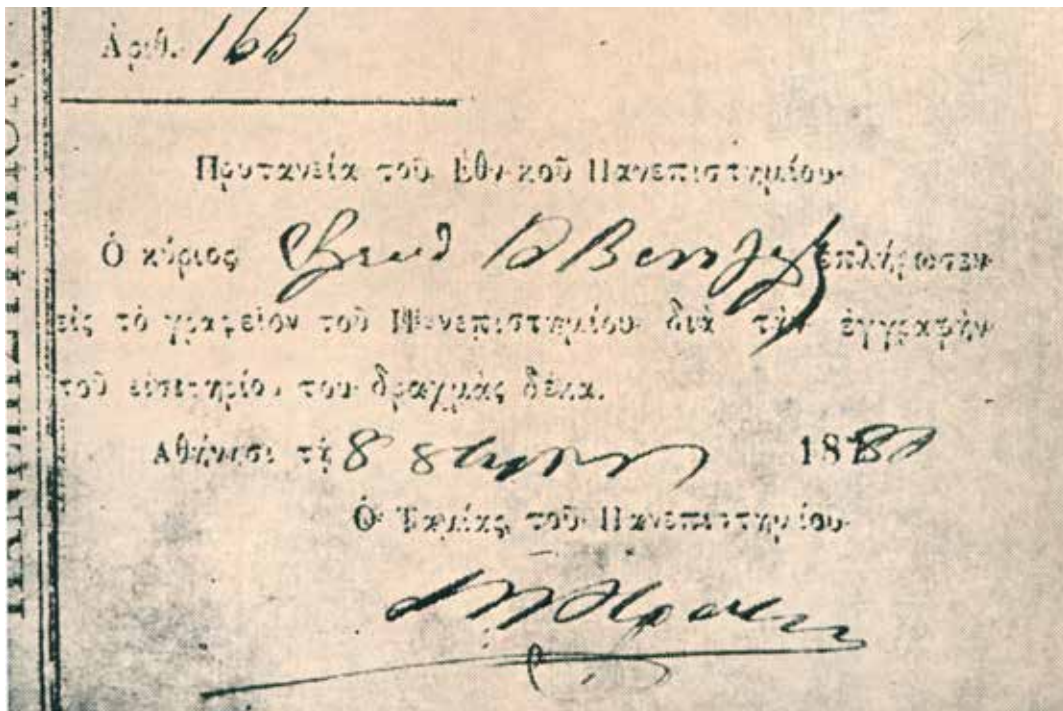 Ἀριθ. 166
Πρυτανεία τοῦ Ἐθνικοῦ Πανεπιστημίου
Ὁ κύριος Κ Βενιζέλος ἐπλήρωσεν
εἰς τὸ γραφεῖον τοῦ Πανεπιστημίου διὰ τὴν ἐγγραφὴν
τοῦ εἰσιτηρίου του δραχμὰς δέκα.
Ἀθήνησι τῇ 8 1881
Ὁ Ταμίας τοῦ Πανεπιστημίου
ΠΑΝΕΠΙΣΤΗΜΙΟΝ